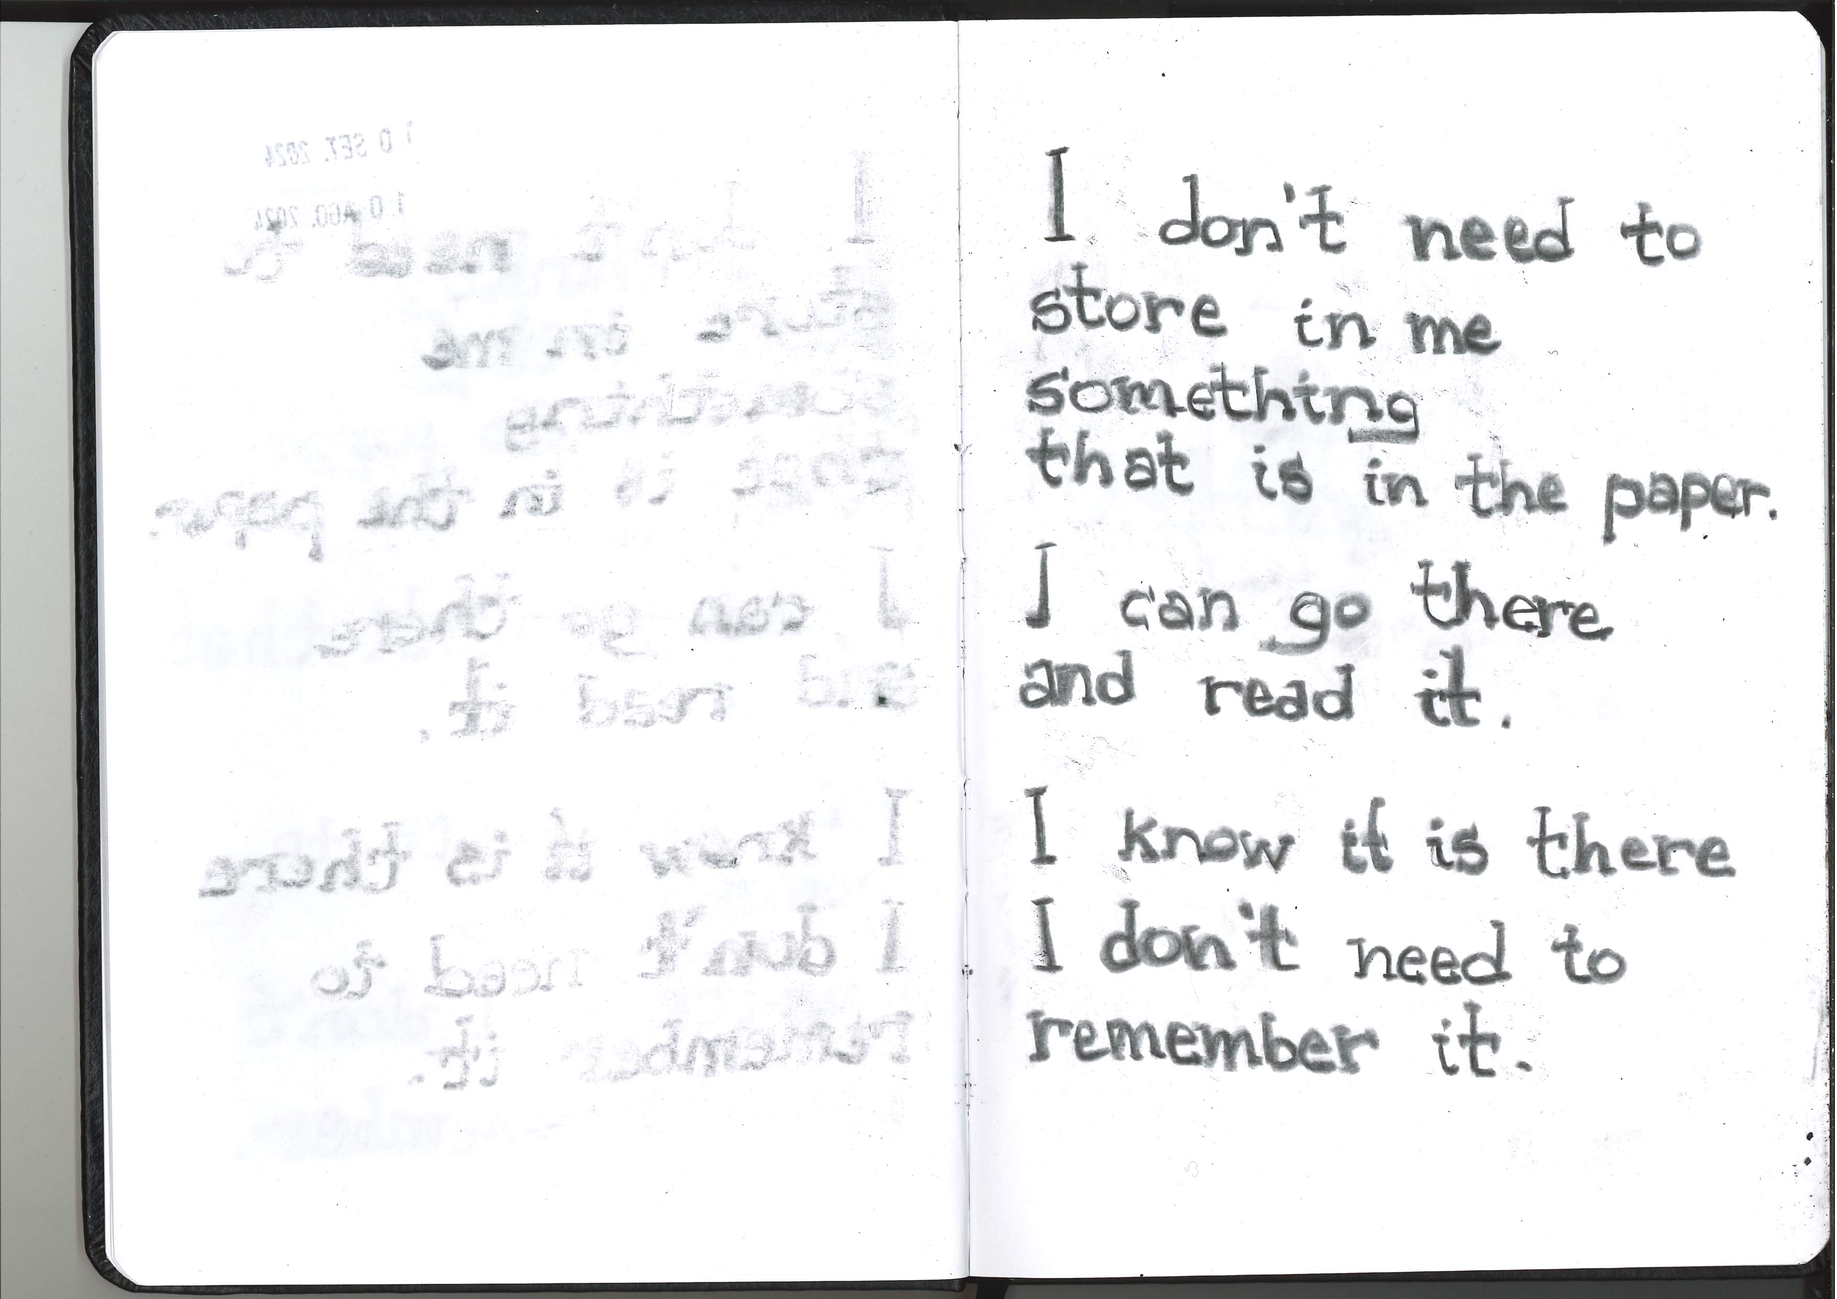 10 SET. 2024
10 AGO. 2024
I don't need to
store in me
something
that is in the paper.
I can go there
and read it.
I know it is there
I don't need to
remember it.